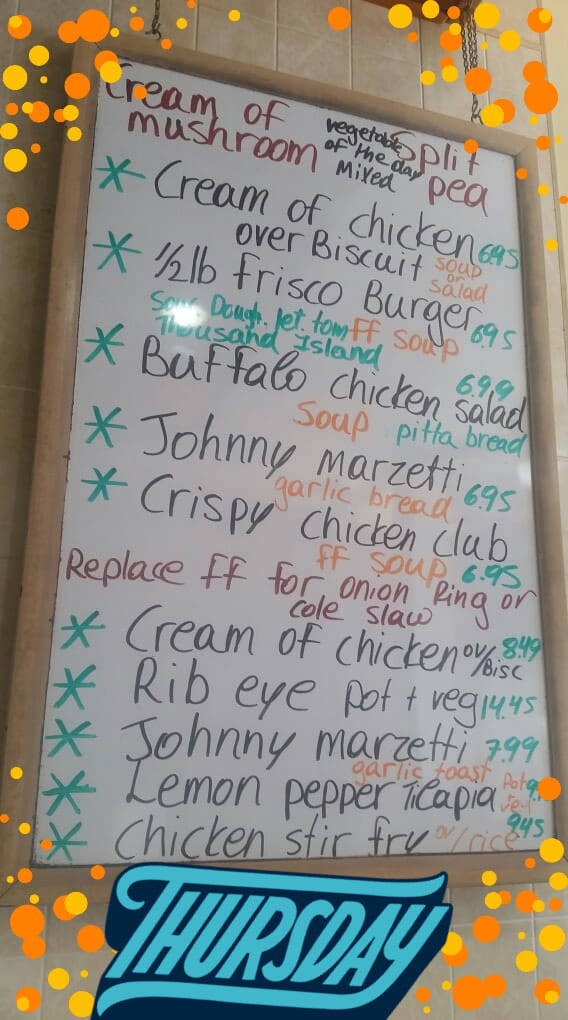 Cream of mushroom
vegetable of the day Mixed
Split pea
* Cream of chicken over Biscuit 6.95
soup or salad
* 1/2 lb Frisco Burger 6.95
Sour Dough. let. tom ff soup
Thousand Island
* Buffalo chicken salad 6.99
soup pitta bread
* Johnny marzetti 6.95
garlic bread
* Crispy chicken club
ff soup 6.95
Replace ff for onion Ring or
cole slaw
* Cream of chicken ov/Bisc 8.49
* Rib eye pot + veg 14.45
* Johnny marzetti 7.99
garlic toast
* Lemon pepper Tilapia pot
* Chicken stir fry ov/rice 9.45
THURSDAY